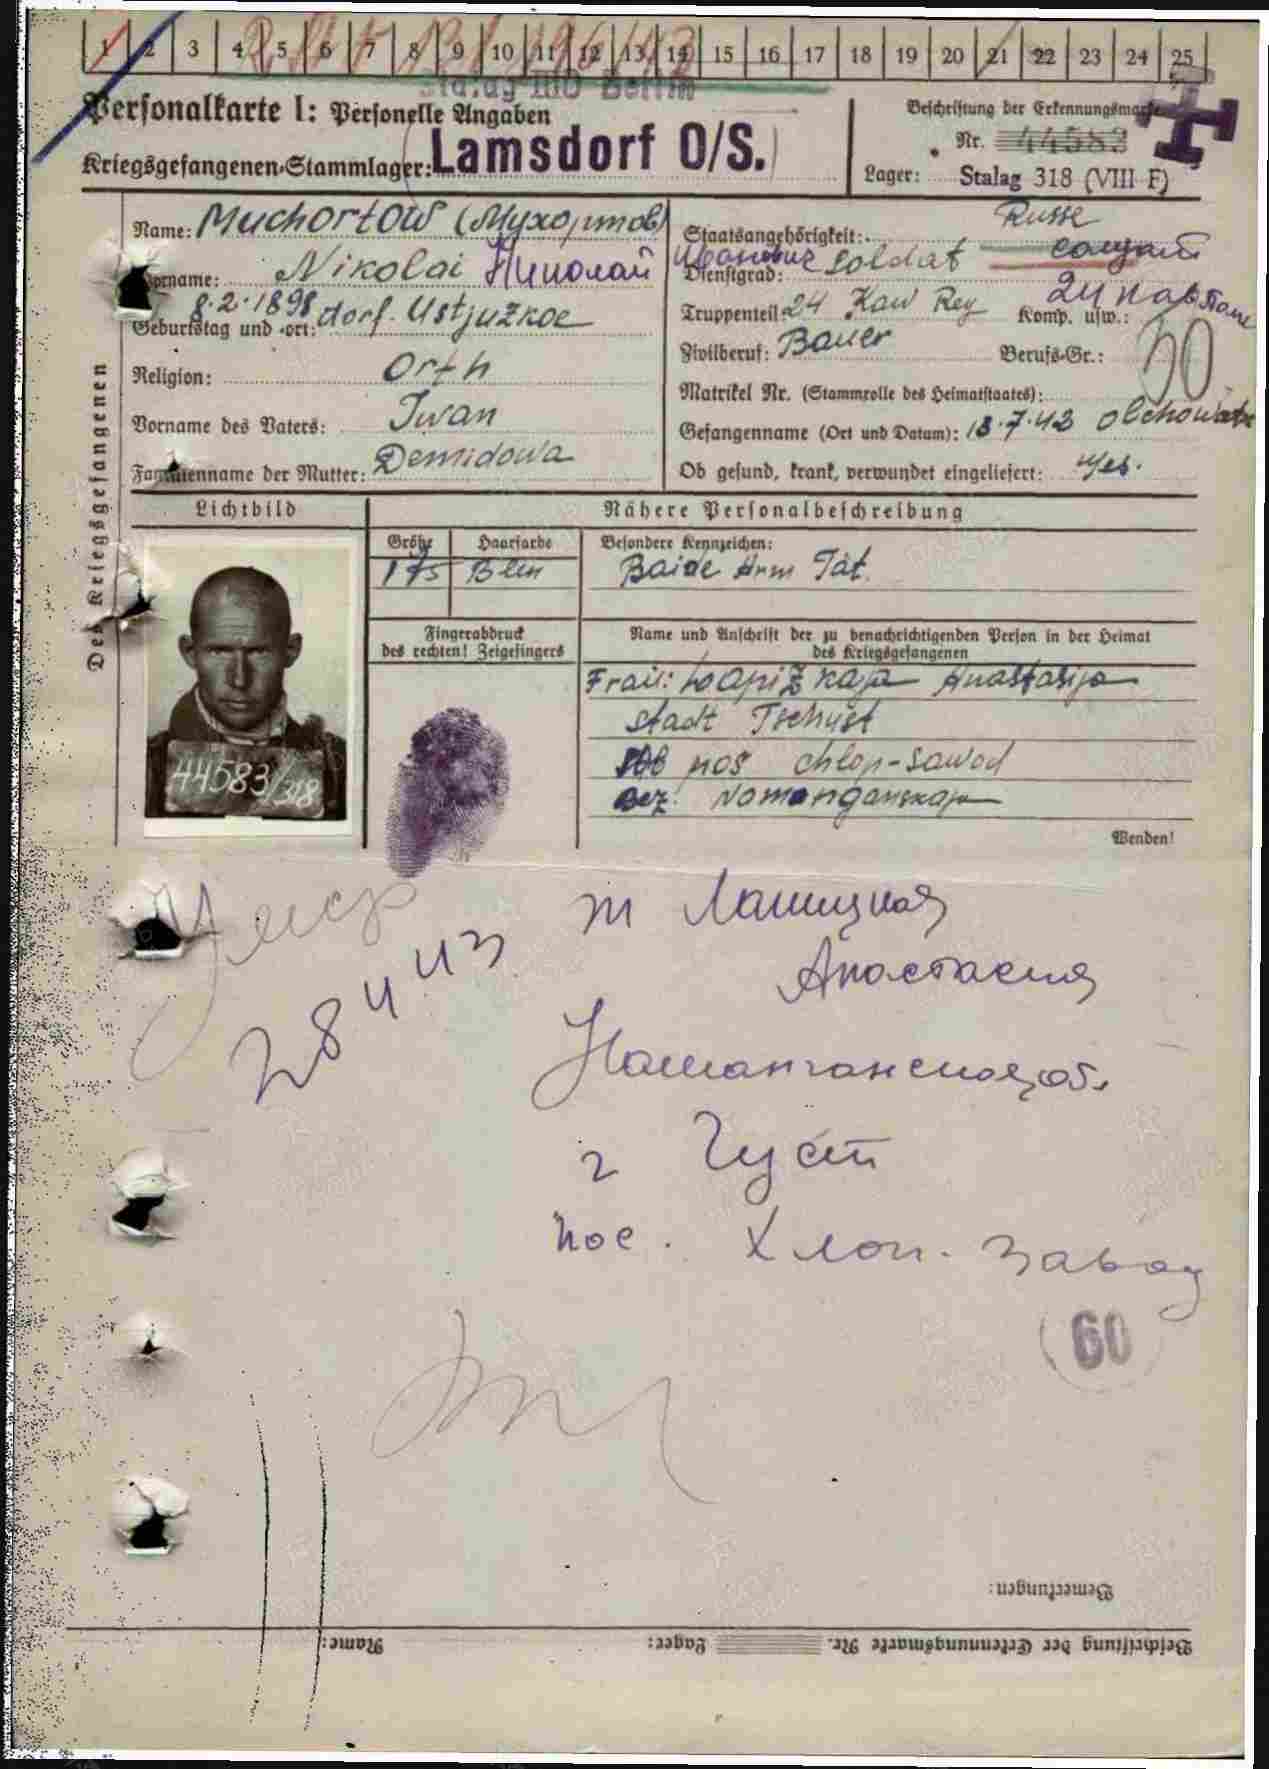 1 2 3 4 5 6 7 8 9 10 11 12 13 14 15 16 17 18 19 20 21 22 23 24 25
Stalag III D Berlin
Personalkarte I: Personelle Angaben
Kriegsgefangenen-Stammlager: Lamsdorf O/S.
Beschriftung der Erkennungsmarke
Nr. 44583
Lager: Stalag 318 (VIII F)
Des Kriegsgefangenen
Name: Muchortow (Мухортов)
Vorname: Nikolai Николай Иванович
Geburtstag und -ort: 8.2.1898 dorf. Ustjužkoe
Religion: Orth
Vorname des Vaters: Iwan
Familienname der Mutter: Demidowa
Staatsangehörigkeit: Russe
Dienstgrad: Soldat солдат
Truppenteil: 24 Kaw Reg Komp. usw.: 24 кав
Zivilberuf: Bauer Berufs-Gr.:
Matrikel Nr. (Stammrolle des Heimatstaates):
Gefangenname (Ort und Datum): 13.7.42 Olchowatka
Ob gesund, krank, verwundet eingeliefert: Ges.
Lichtbild
44583/318
Nähere Personalbeschreibung
Größe Haarfarbe Besondere Kennzeichen:
175 Blen Baide Arm Tät.
Fingerabdruck
des rechten! Zeigefingers
Name und Anschrift der zu benachrichtigenden Person in der Heimat
des Kriegsgefangenen
Frau: Lapizkaja Anastasija
Stadt Tschust
pos chlop-sawod
Bez. Namanganskaja
Wenden!
Умер
28 4 43
ж Лапицкая
Анастасия
Наманганская об.
г Чуст
пос. Хлоп. завод
60
Bemerkungen:
Name: Lager: Beschriftung der Erkennungsmarke Nr.